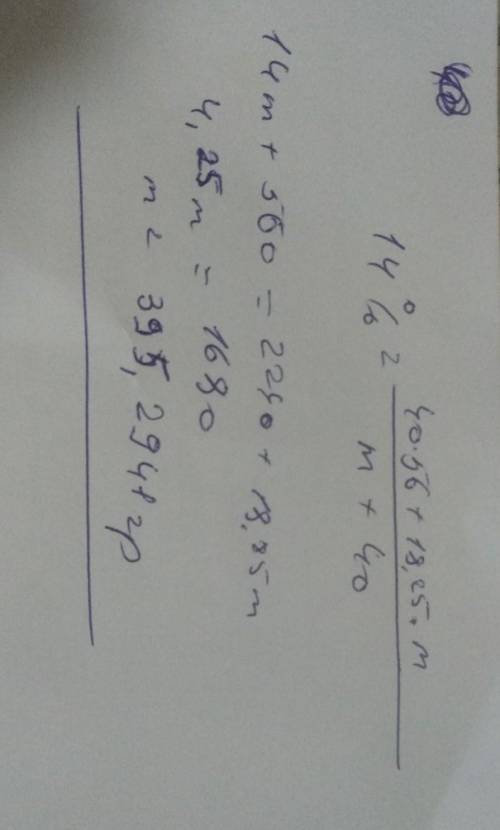 14% = (40·56 + 18,25·m) / (m + 40)
14m + 560 = 2240 + 18,25m
4,25m = 1680
m = 395,2941 гр